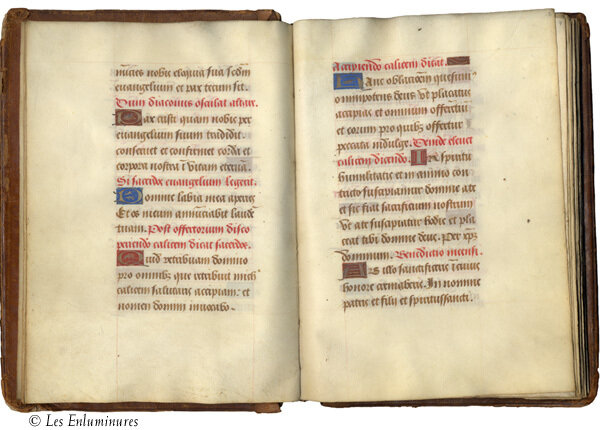 nuncies nobis eloquia sua secundum
euangelium et pax tecum sit.
Dum diaconus osculat altare.
Pax cristi quam nobis per
euangelium suum tradidit.
conseruet et confirmet corda et
corpora nostra i vitam eternā.
Si sacerdos euangelium legerit.
Domine labia mea aperies
Et os meum annūciabit laudē
tuam. Post offertorium disco
operiendo calicem dicat sacerdos.
Quid retribuam domino
pro omnibꝰ que retribuit michi
calicem salutaris accipiam: et
nomen domini inuocabo.
Accipiendo calicem dicat.
Hanc oblacionem quesumꝰ
omnipotens deus vt placatus
accipias et omnium offerētiū
et eorum pro quibꝰ offertur
peccata indulge. Deinde eleuet
calicem dicendo. In spiritu
humilitatis et in animo con
trito suscipiamur domine a te
et sic fiat sacrificium nostrum
vt a te suscipiatur hodie et pla
ceat tibi domine deus. Per xp̄m
dominum. Benedictio incensi.
Ab illo sanctificeris in cuius
honore cremaberis. In nomine
patris et filij et spiritussancti.
© Les Enluminures